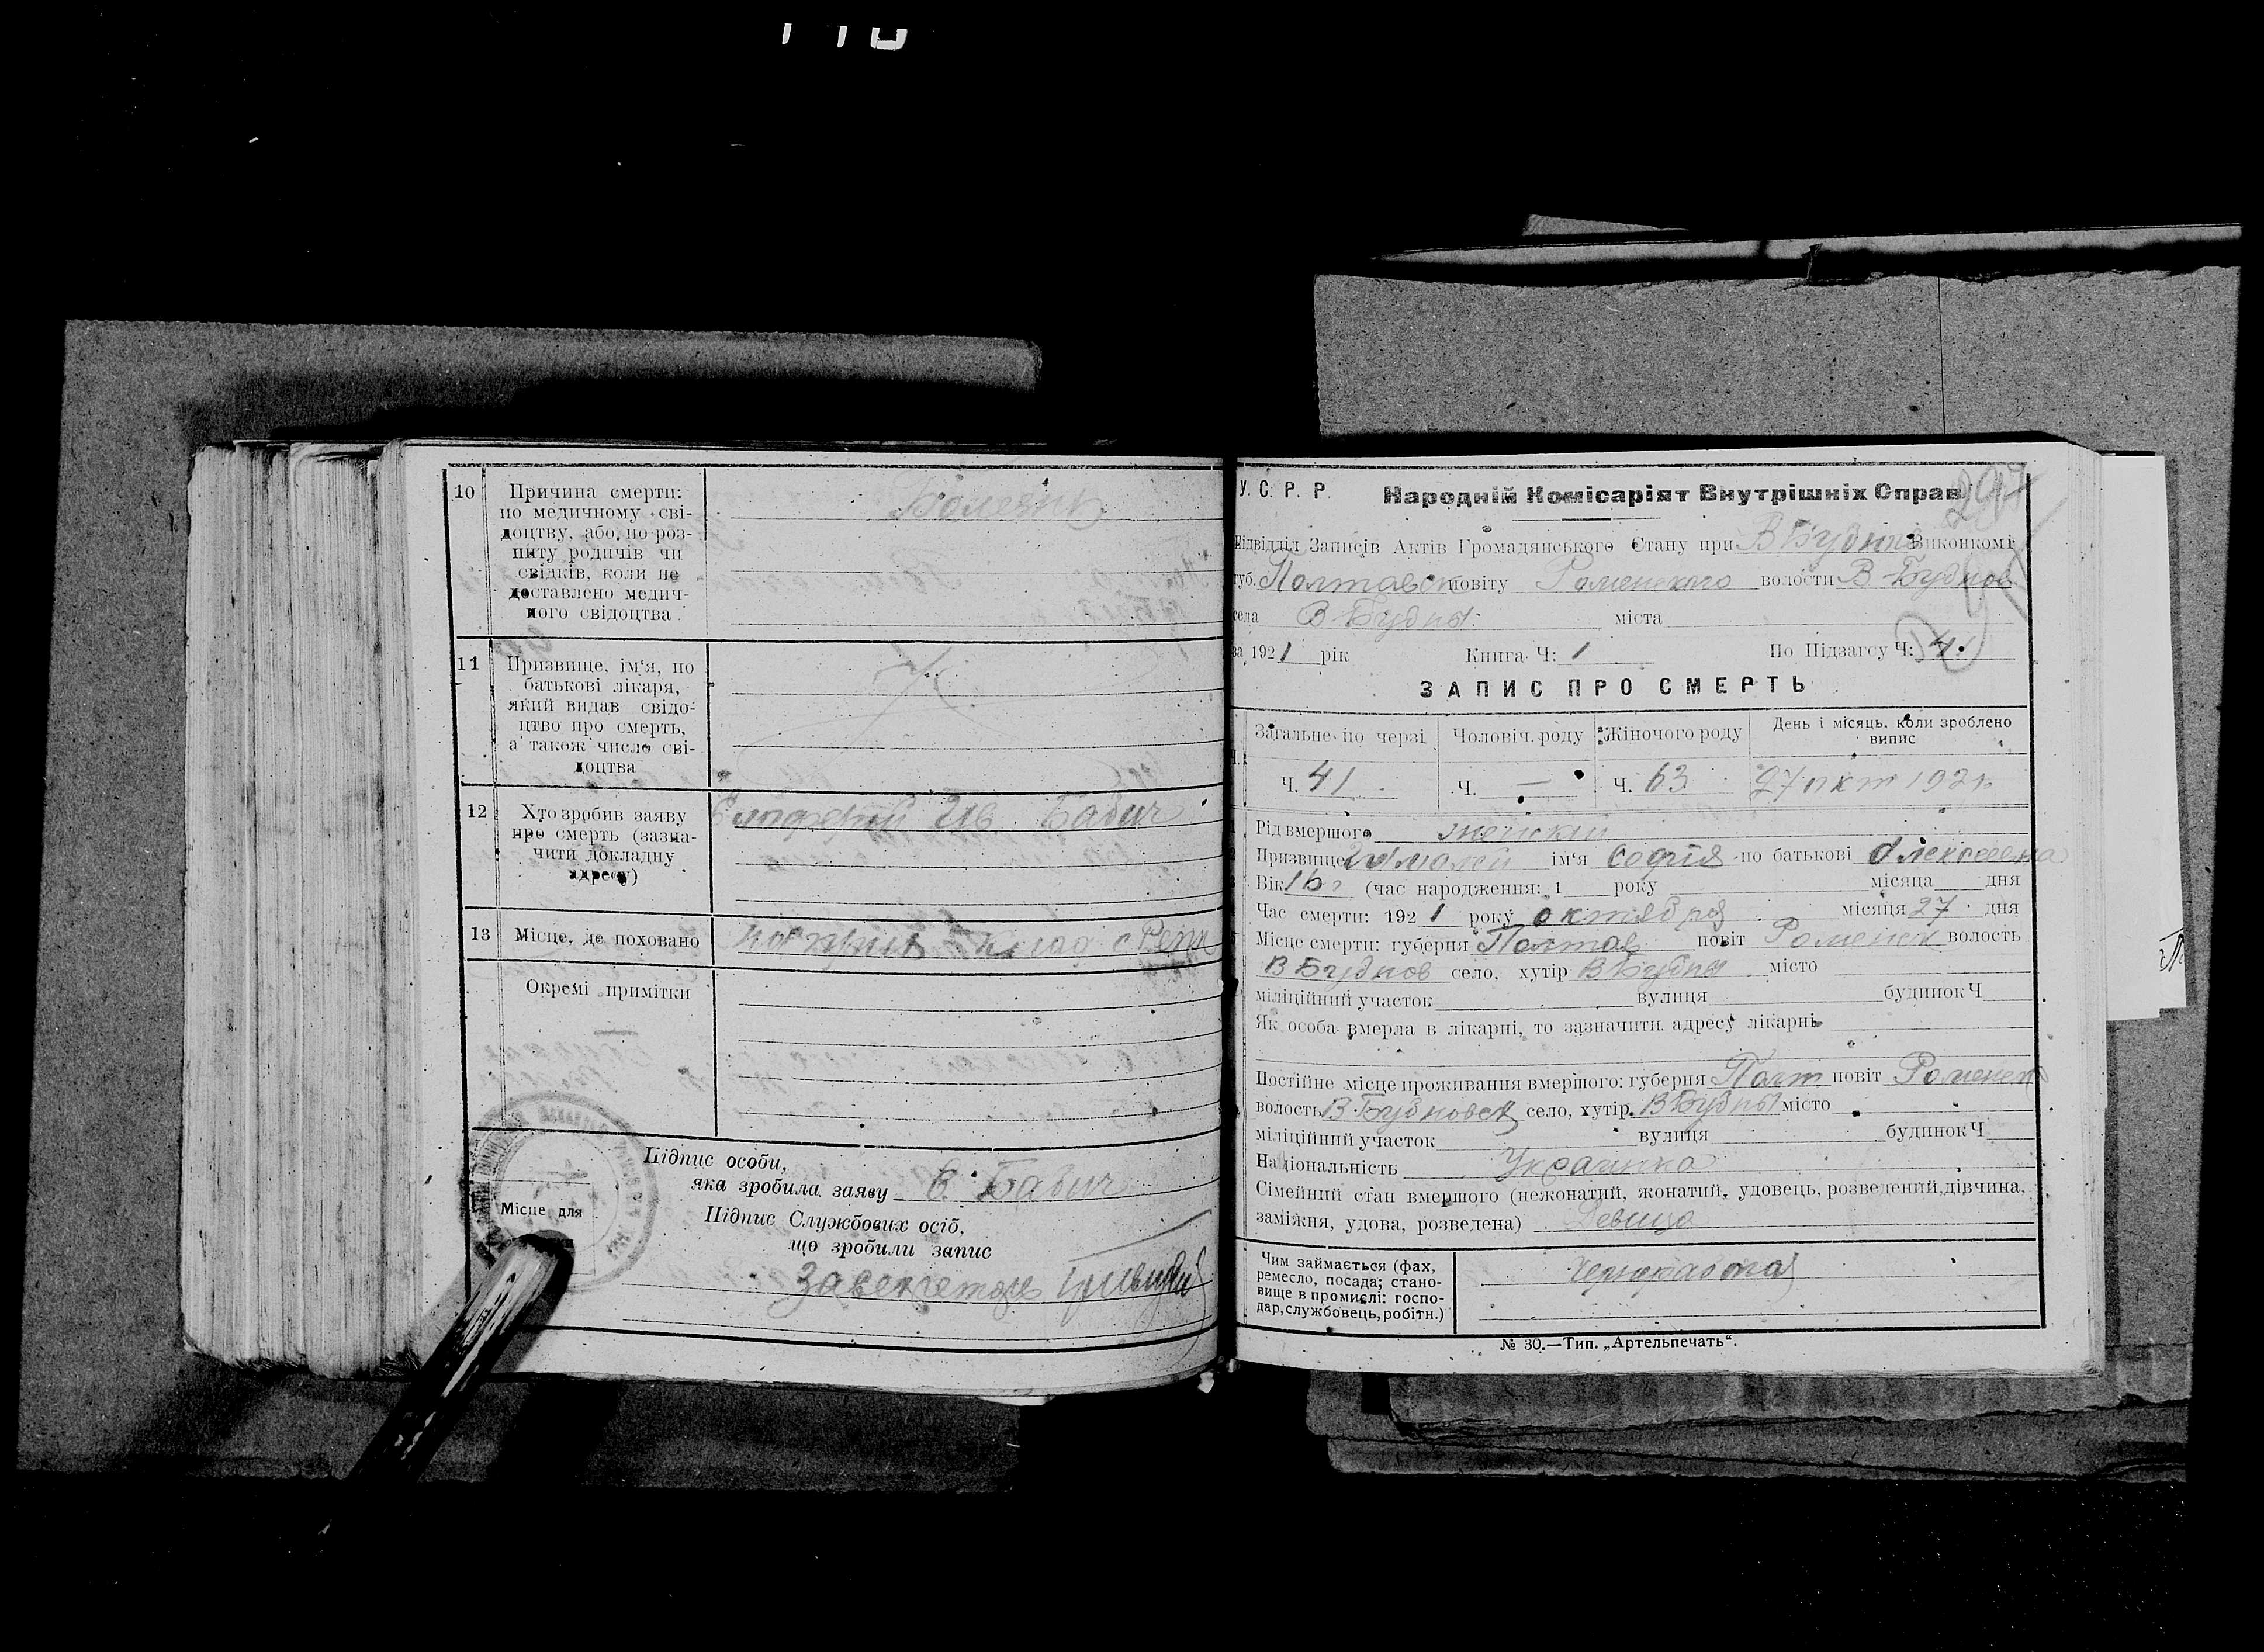 10
Причина смерти:
по медичному сві-
доцтву, або по роз-
питу родичів чи
свідків, коли не
доставлено медич-
ного свідоцтва
Болезнь
11
Призвище, ім'я, по
батькові лікаря,
який видав свідо-
цтво про смерть,
а також число сві-
доцтва
12
Хто зробив заяву
про смерть (зазна-
чити докладну
адресу)
Ив. Бабич
13
Місце, де поховано
Окремі примітки
Підпис особи,
яка зробила заяву Е. Бабич
Підпис Службових осіб,
що зробили запис
Місце для
У. С. Р. Р. Народній Комісаріят Внутрішніх Справ
Підвідділ Записів Актів Громадянського Стану при В Будни Виконкомі
губ. Полтавск повіту Роменского волости В-Буднов
села В-Будны міста
за 1921 рік Книга Ч: 1 По Підзагсу Ч: 41
ЗАПИС ПРО СМЕРТЬ
Загальне по черзі Чоловіч. роду Жіночого роду День і місяць, коли зроблено
випис
Ч. 41 Ч. — Ч. 63 27 окт 192
Рід вмершого женский
Призвище ім'я София по батькові Алексеевна
Вік 16 г (час народження: 1 року місяця дня
Час смерти: 1921 року октября місяця 27 дня
Місце смерти: губерня Полтав повіт Роменск волость
В Буднов село, хутір В Будны місто
міліційний участок вулиця будинок Ч
Як особа вмерла в лікарні, то зазначити адресу лікарні
Постійне місце проживання вмершого: губерня Полт повіт Роменск
волость В-Будновск село, хутір В Будны місто
міліційний участок вулиця будинок Ч
Національність Украинка
Сімейний стан вмершого (нежонатий, жонатий, удовець, розведений, дівчина,
заміжня, удова, розведена) Девица
Чим займається (фах,
ремесло, посада; стано-
вище в промислі: госпо-
дар, службовець, робітн.)
№ 30.—Тип. „Артельпечать“.